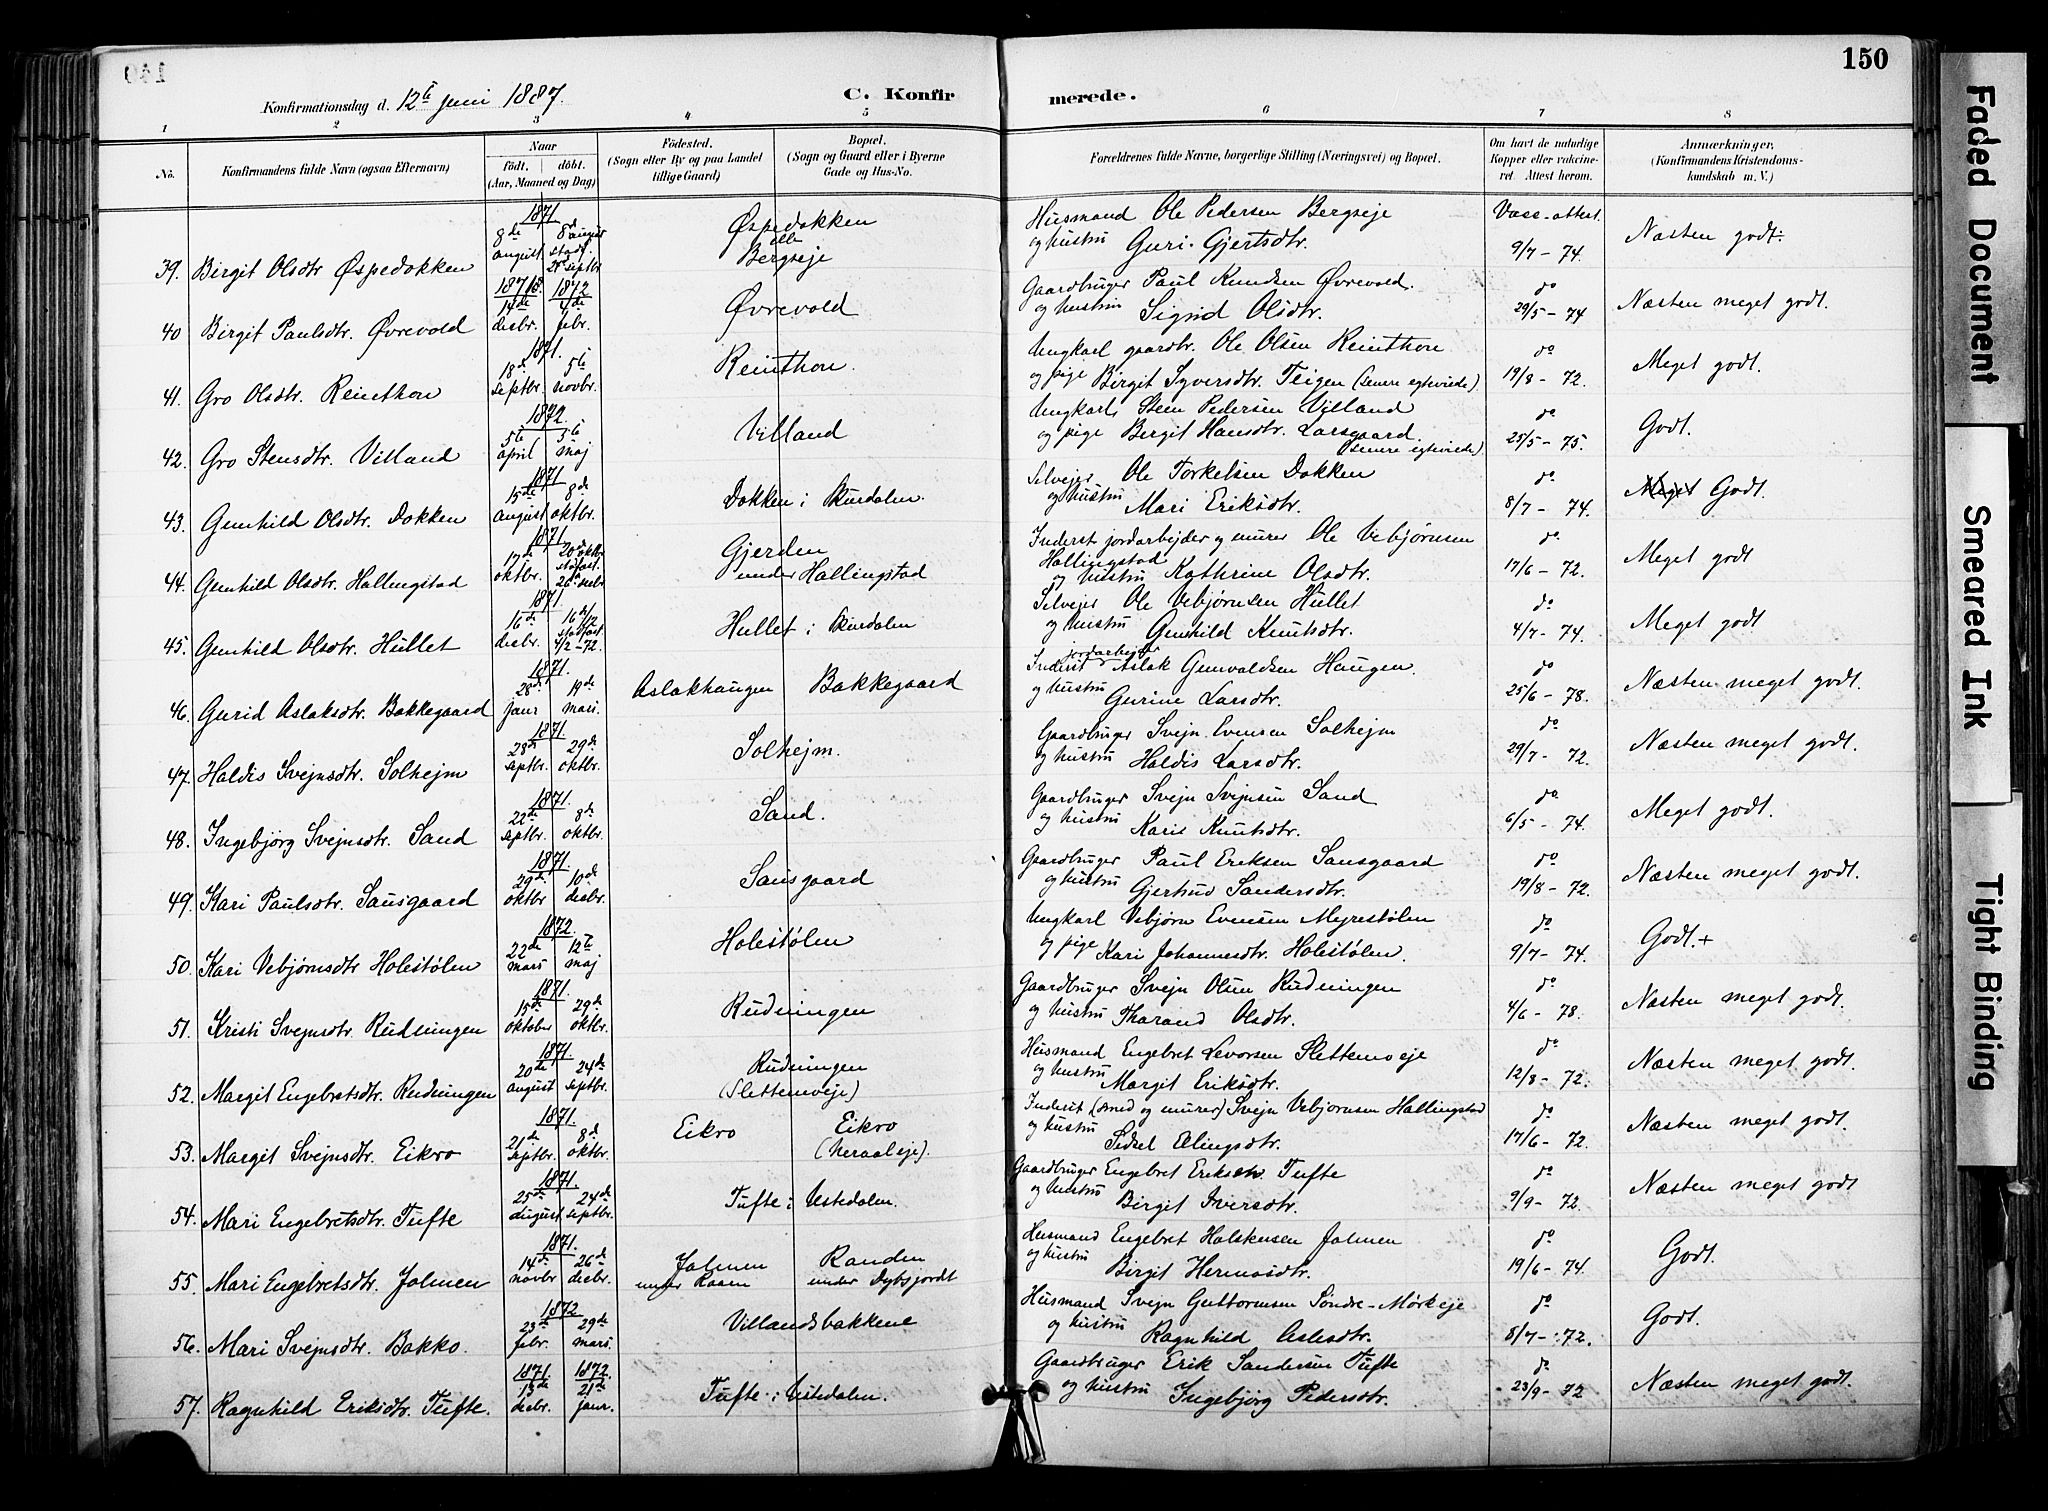 150
Konfirmationsdag d. 12te juni 1887.
C. Konfirmerede.
1 2 3 4 5 6 7 8
No.
Konfirmandens fulde Navn (ogsaa Efternavn)
Naar
födt, döbt.
(Aar, Maaned og Dag)
Födested.
(Sogn eller By og paa Landet
tillige Gaard)
Bopæl.
(Sogn og Gaard eller i Byerne
Gade og Hus-No.
Forældrenes fulde Navne, borgerlige Stilling (Næringsvei) og Bopæl.
Om havt de naturlige
Kopper eller vakcine-
ret. Attest herom.
Anmærkninger.
(Konfirmandens Kristendoms-
kundskab m. V.)
39. Birgit Olsdtr Øspedokken 1871 8de august 8de august stadf. 25 septbr Øspedokken elle Bergseje Husmand Ole Pedersen Bergseje og hustru Guri Gjertsdtr. Vacc-attest. 9/7 - 74. Næsten godt.
40 Birgit Paulsdtr. Øvrevold 1871 14de desbr. 1872 4de febr. Øvrevold Gaardbruger Paul Knudsen Øvrevold. og hustru Sigrid Olsdtr. do 29/5 - 74 Næsten meget godt.
41. Gro Olsdtr. Reinthon 1871. 18de septbr. 5te novbr. Reinthon. Ungkarl gaardbr. Ole Olsen Reinthon og pige Birgit Syversdtr. Teigen (senere egteviede) do 19/8 - 72. Meget godt.
42. Gro Stensdtr. Villand 1872. 5te april 5te maj Villand Ungkarl Steen Pedersen Villand og pige Bergit Hansdtr. Larsgaard. (senere egteviede) do 25/5 - 75. Godt.
43. Gunhild Olsdtr. Dokken 1871 15de august 8de oktbr. Dokken i Skurdalen. Selvejer Ole Torkelsen Dokken og hustru Mari Eriksdtr. do 8/7 - 74. Meget Godt.
44. Gunhild Olsdtr. Hallingstad 1871. 17de oktbr. 20de oktbr stadfæst. 26de desbr Gjerden under Hallingstad Inderst jordarbejder og murer Ole Vebjørnsen Hallingstad og hustru Kathrine Olsdtr. do 17/6 - 72. Meget godt
45. Gunhild Olsdtr. Hullet 1871. 16de desbr. 16de/12 stadfæst 4/2 - 72. Hullet i Skurdalen Selvejer Ole Vebjørnsen Hullet og hustru Gunhild Knutsdtr. do 4/7 - 74. Meget godt
46. Gurid Aslaksdtr. Bakkegaard 1871. 28de janr 19de mars. Aslakhaugen Bakkegaard Inderst jordarbejder Aslak Gunvaldsen Haugen. og hustru Gurine Larsdtr. do 25/6 - 78. Næsten meget godt.
47. Haldis Svejnsdtr. Solhejm 1871. 28de septbr. 29de oktbr. Solhejm. Gaardbruger Svejn Evensen Solhejm og hustru Haldis Larsdtr. do 29/7 - 72. Næsten meget godt.
48. Ingebjörg Svejnsdtr. Sand 1871. 22de septbr. 8de oktbr. Sand. Gaardbruger Svejn Svejnsen Sand og hustru Kari Knutsdtr. do 6/5 - 74. Meget godt.
49. Kari Paulsdtr. Sausgaard 1871. 29de oktbr 10de desbr. Sausgaard Gaardbruger Paul Eriksen Sausgaard og hustru Gjertrud Sandersdtr. do 19/8 - 72. Næsten meget godt.
50. Kari Vebjørnsdtr Holestølen 1872. 22de mars 12te maj Holestølen Ungkarl Vebjørn Evensen Myrestølen og pige Kari Johannesdtr. Holestølen. do 9/7 - 74. Godt.+
51. Kristi Svejnsdtr. Rudningen 1871. 15de oktober 29de oktbr. Rudningen Gaardbruger Svejn Olsen Rudningen og hustru Tharand Olsdtr. do 4/6 - 78. Næsten meget godt.
52. Margit Engebretsdtr. Rudningen 1871. 20de august 24de septbr. Rudningen (Slettemoeje) Husmand Engebret Levorsen Slettemoeje og hustru Margit Eriksdtr. do 12/8 - 72. Næsten meget godt.
53. Margit Svejnsdtr. Eikro 1871. 21de septbr. 8de oktbr. Eikro Eikro (Neraaleje). Inderst (smed og murer) Svejn Vebjørnsen Hallingstad og hustru Sidsel Elingsdtr. do 17/6 - 72. Næsten meget godt.
54. Mari Engebretsdtr. Tufte 1871. 25de august 24de septbr. Tufte i Ustedalen. Gaardbruger Engebret Eriksen Tufte og hustru Birgit Iversdtr. do 9/9 - 72. Næsten meget godt
55. Mari Engebretsdtr. Jalmen 1871. 14de novbr 26de desbr. Jalmen under Raaen Randen under Dybsjordt Husmand Engebret Halstensen Jalmen og hustru Birgit Hermosdtr. do 19/6 - 74. Godt.
56. Mari Svejnsdtr. Bakko. 1872 23de febr. 29de mars. Villandsbakkene Husmand Svejn Guttormsen Søndre-Mørkeje og hustru Ragnhild Aslesdtr. do 8/7 - 72. Godt.
57. Ragnhild Eriksdtr. Tufte. 1871. 13de desbr. 1872. 21de janr. Tufte i Ustedalen. Gaardbruger Erik Sandersen Tufte og hustru Ingebjörg Pedersdtr. do 23/9 - 72 Næsten meget godt.
Faded Document
Smeared Ink
Tight Binding